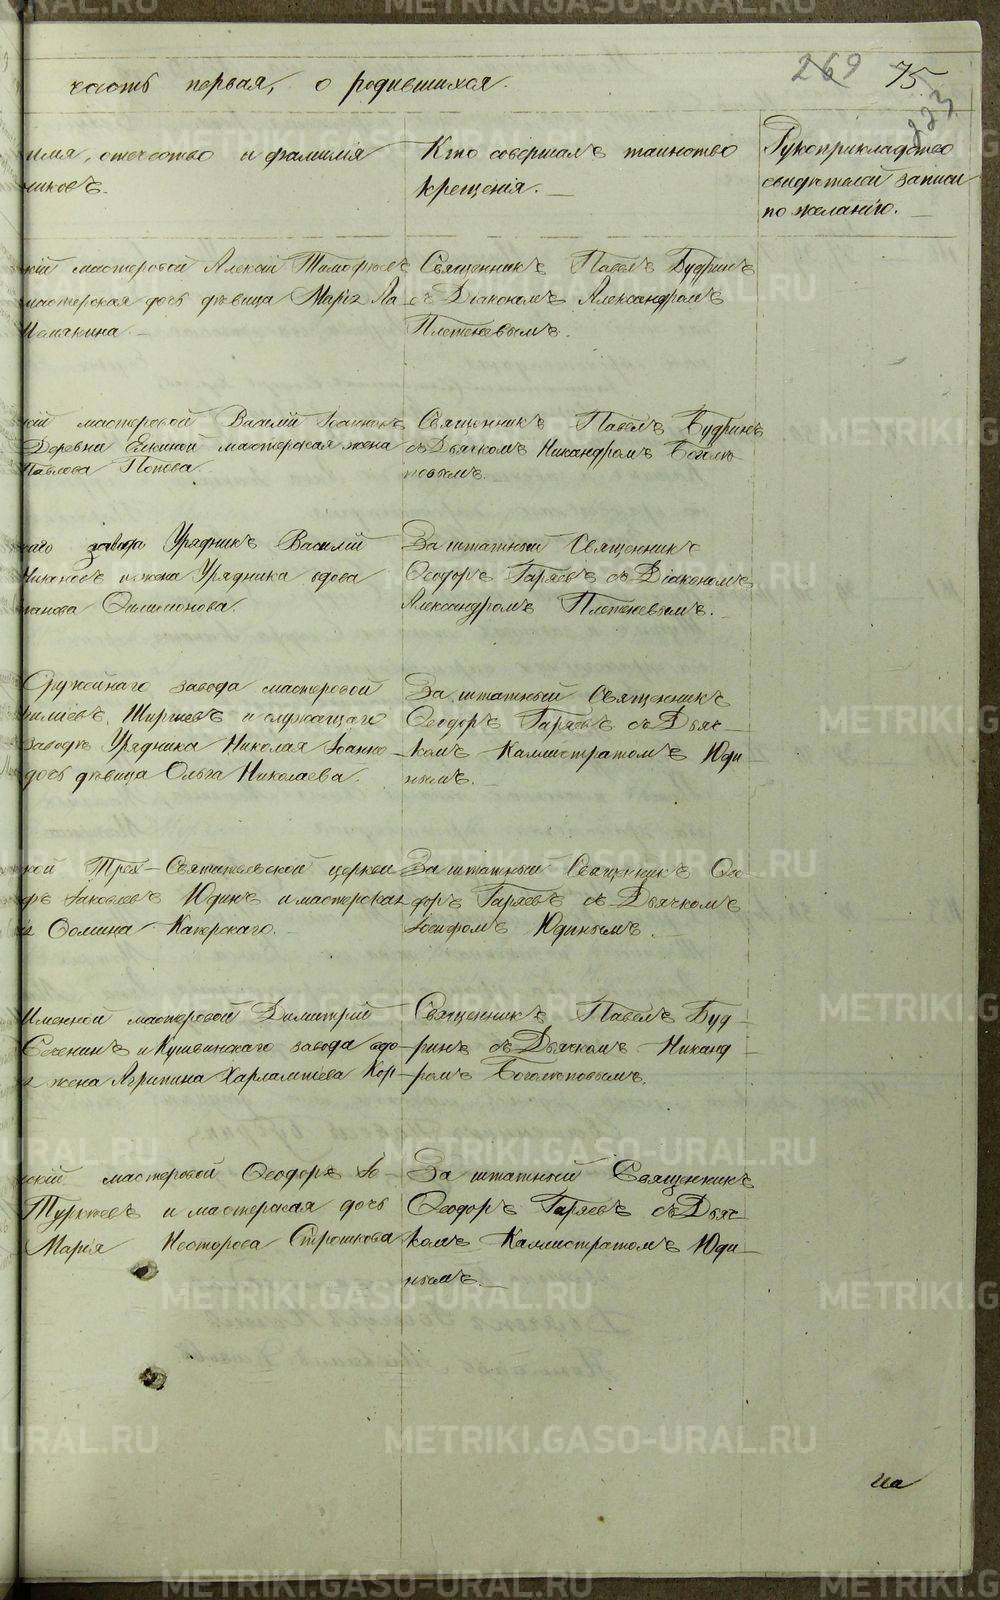 269 75.
223
часть первая, о родившихся.
имя, отчество и фамилія
никовъ.
Кто совершалъ таинство
крещенія.
Рукоприкладство
свидѣтелей записи
по желанію.
кій мастеровой Алексій Тимофѣевъ
мастерская дочь дѣвица Марія Ла
Шемякина
Священникъ Павелъ Будринъ
съ Діакономъ Александромъ
Плетеневымъ.
кій мастеровой Василій Іоанновъ
Деревни мастерская жена
Павлова Попова.
Священникъ Павелъ Будринъ
съ Дьячкомъ Никандромъ Боголѣ
повымъ.
каго завода Урядникъ Василій
и жена Урядника вдова
Филимонова.
За штатный Священникъ
Ѳеодоръ Гаряевъ съ Діакономъ
Александромъ Плетеневымъ.
Оружейнаго завода мастеровой
и служащаго
заводѣ Урядника Николая Іоанно
дочь дѣвица Ольга Николаева.
За штатный Священникъ
Ѳеодоръ Гаряевъ съ Дьяч-
комъ Каллистратомъ Юди-
нымъ.
кой Трех-Святительской церкви
Яковлевъ Юдинъ и мастерская
Ѳомина
За штатный Священникъ Ѳео-
доръ Гаряевъ съ Дьячкомъ
Іосифомъ Юдинымъ.
Именной мастеровой Димитрій
и Кушвинскаго завода вдо-
жена Агрипина Харлампіева Кор-
Священникъ Павелъ Буд-
ринъ съ Дьячкомъ Никанд-
ромъ Боголѣповымъ.
скій мастеровой Ѳеодоръ Іо-
и мастерская дочь
Марія Несторова
За штатный Священникъ
Ѳеодоръ Гаряевъ съ Дьяч-
комъ Каллистратомъ Юди-
нымъ.
На
METRIKI.GASO-URAL.RU